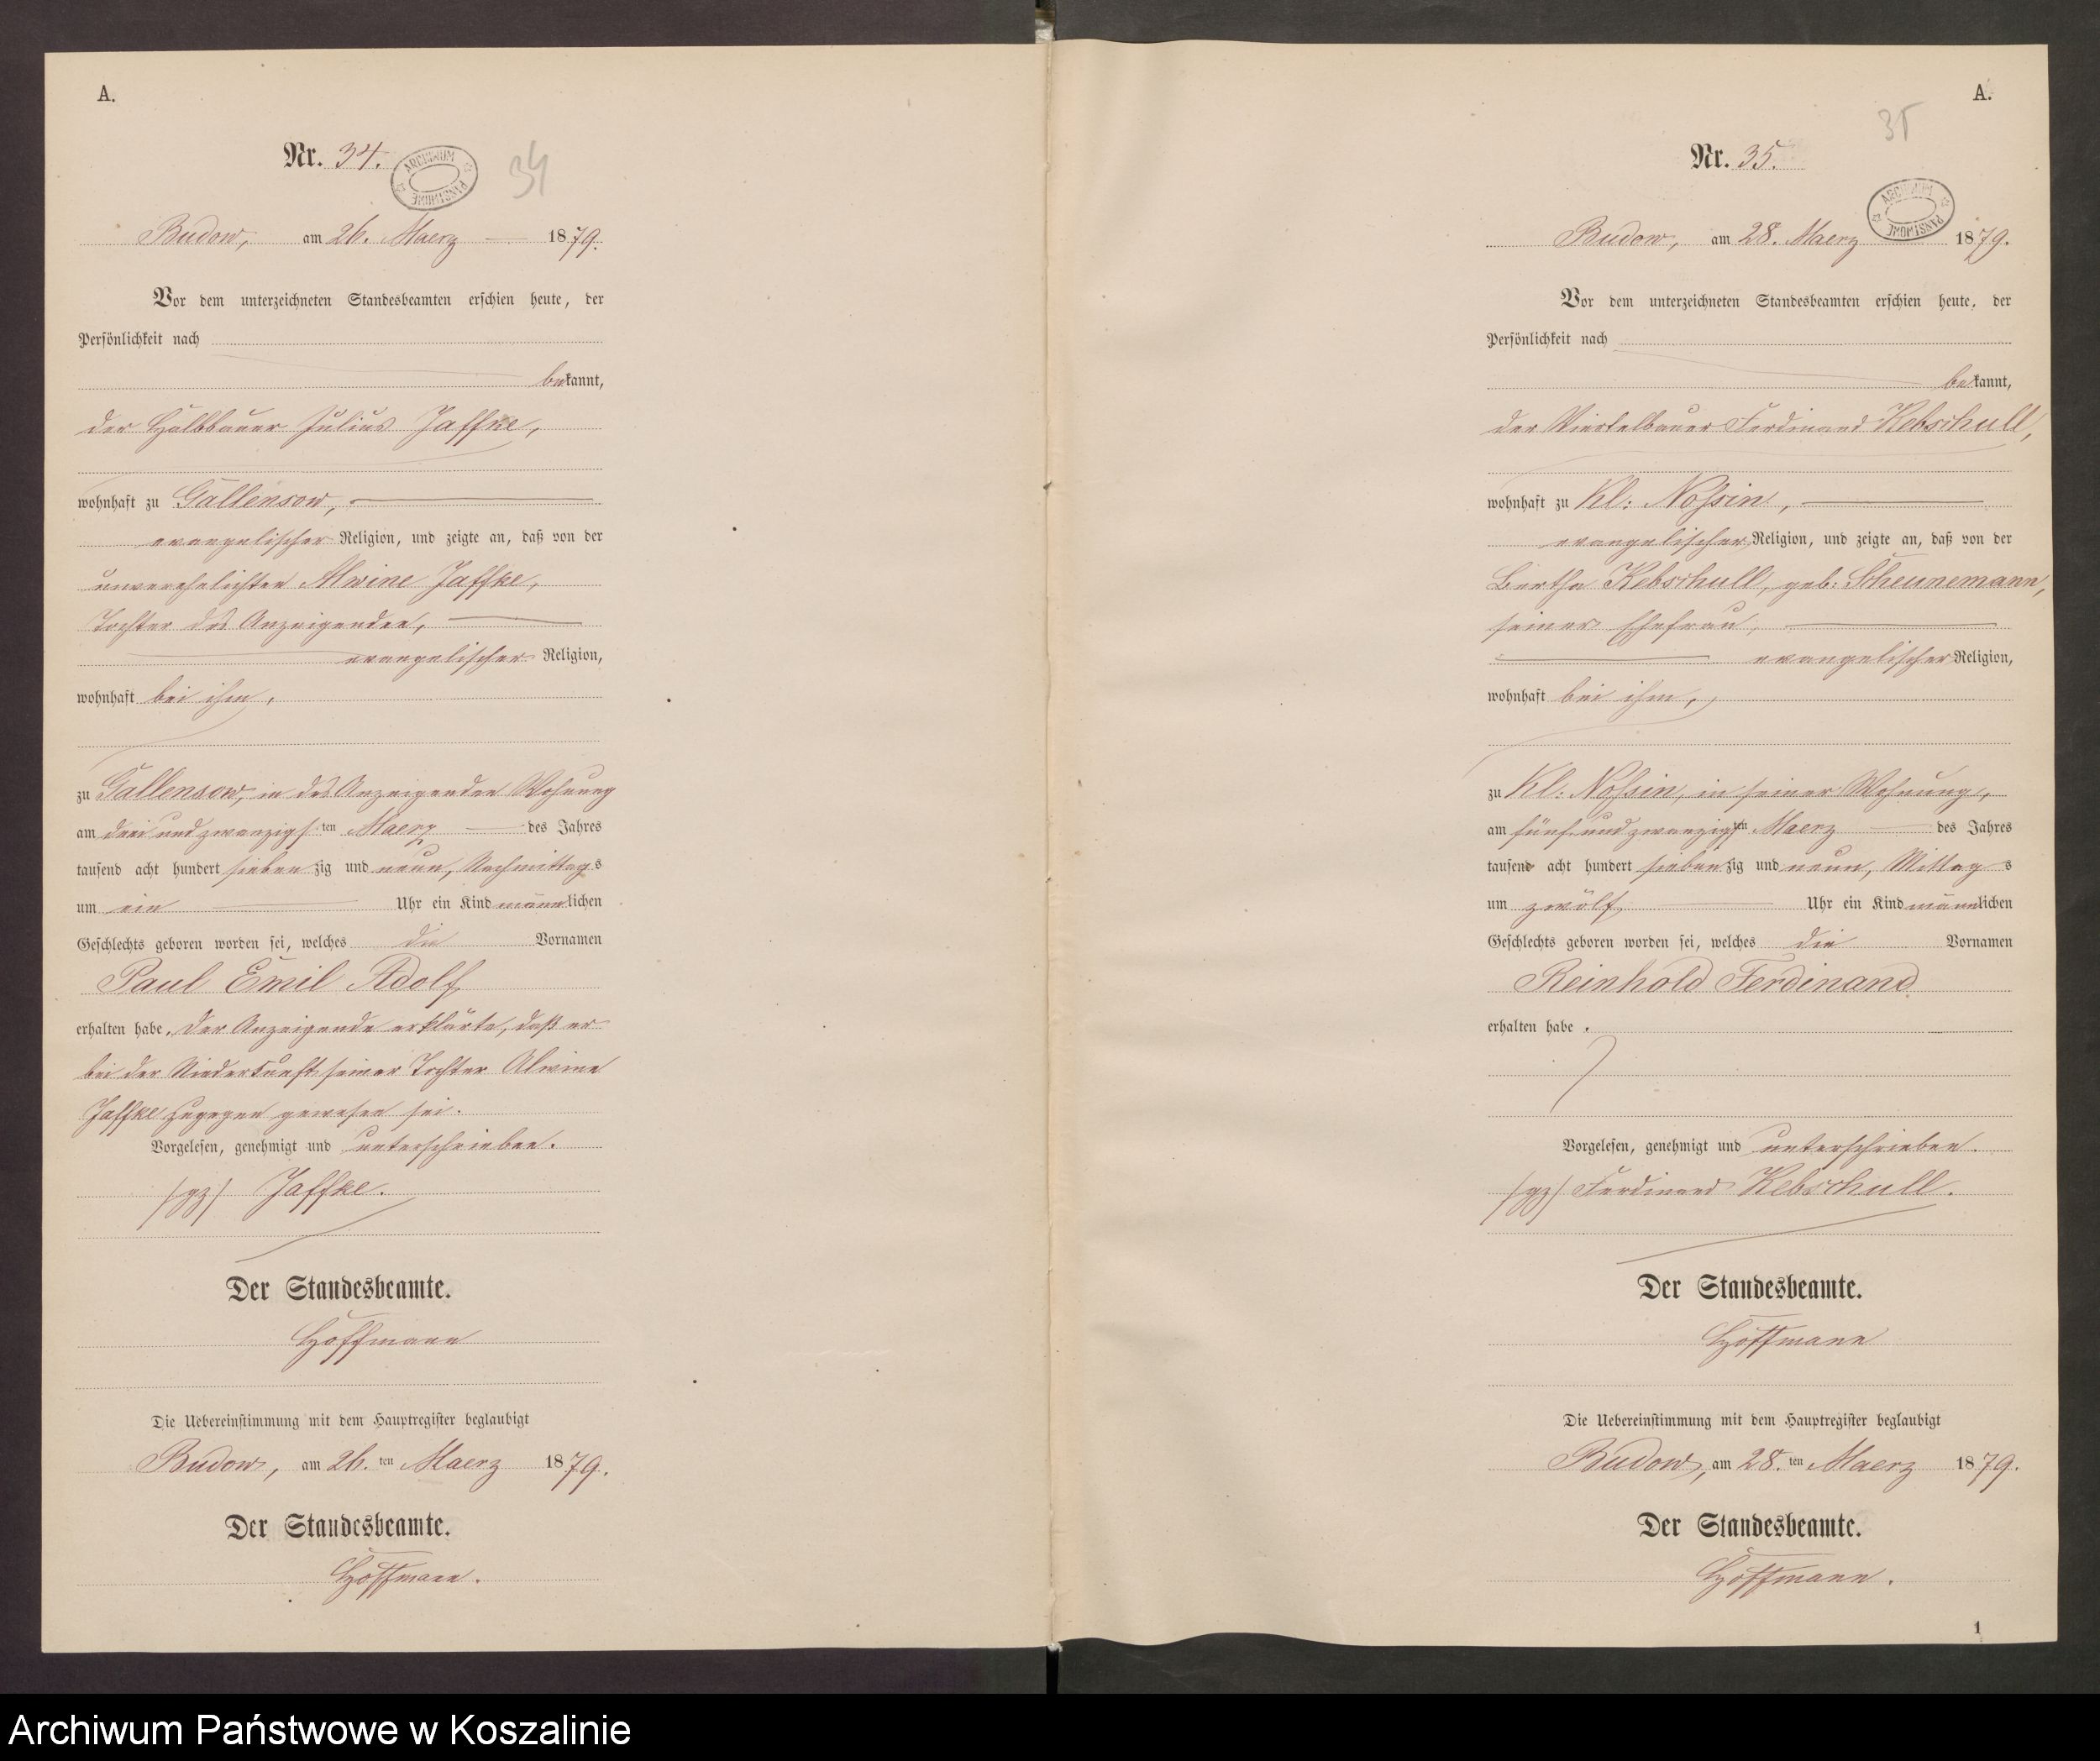 A.
Nr. 34.
ARCHIWUM PAŃSTWOWE
34
Budow, am 26. Maerz 1879.
Vor dem unterzeichneten Standesbeamten erschien heute, der
Persönlichkeit nach
bekannt,
der Halbbauer Julius Jaffke,
wohnhaft zu Gallensow,
evangelischer Religion, und zeigte an, daß von der
unverehelichten Alwine Jaffke,
Tochter des Anzeigenden,
evangelischer Religion,
wohnhaft bei ihm,
zu Gallensow, in des Anzeigenden Wohnung
am drei und zwanzigsten Maerz des Jahres
tausend acht hundert siebenzig und neun, Nachmittags
um ein Uhr ein Kind männlichen
Geschlechts geboren worden sei, welches die Vornamen
Paul Emil Adolf
erhalten habe. Der Anzeigende erklärte, daß er
bei der Niederkunft seiner Tochter Alwine
Jaffke zugegen gewesen sei.
Vorgelesen, genehmigt und unterschrieben.
/gz/ Jaffke.
Der Standesbeamte.
Hoffmann
Die Uebereinstimmung mit dem Hauptregister beglaubigt
Budow, am 26.ten Maerz 1879.
Der Standesbeamte.
Hoffmann.
A.
35
Nr. 35.
ARCHIWUM PAŃSTWOWE
Budow, am 28. Maerz 1879.
Vor dem unterzeichneten Standesbeamten erschien heute, der
Persönlichkeit nach
bekannt,
der Viertelbauer Ferdinand Kebschull,
wohnhaft zu Kl: Nossin,
evangelischer Religion, und zeigte an, daß von der
Bertha Kebschull, geb: Scheunemann,
seiner Ehefrau,
evangelischer Religion,
wohnhaft bei ihm,
zu Kl: Nossin, in seiner Wohnung,
am fünf und zwanzigsten Maerz des Jahres
tausend acht hundert siebenzig und neun, Mittags
um zwölf Uhr ein Kind männlichen
Geschlechts geboren worden sei, welches die Vornamen
Reinhold Ferdinand
erhalten habe.
Vorgelesen, genehmigt und unterschrieben.
/gz/ Ferdinand Kebschull.
Der Standesbeamte.
Hoffmann
Die Uebereinstimmung mit dem Hauptregister beglaubigt
Budow, am 28.ten Maerz 1879.
Der Standesbeamte.
Hoffmann.
1
Archiwum Państwowe w Koszalinie